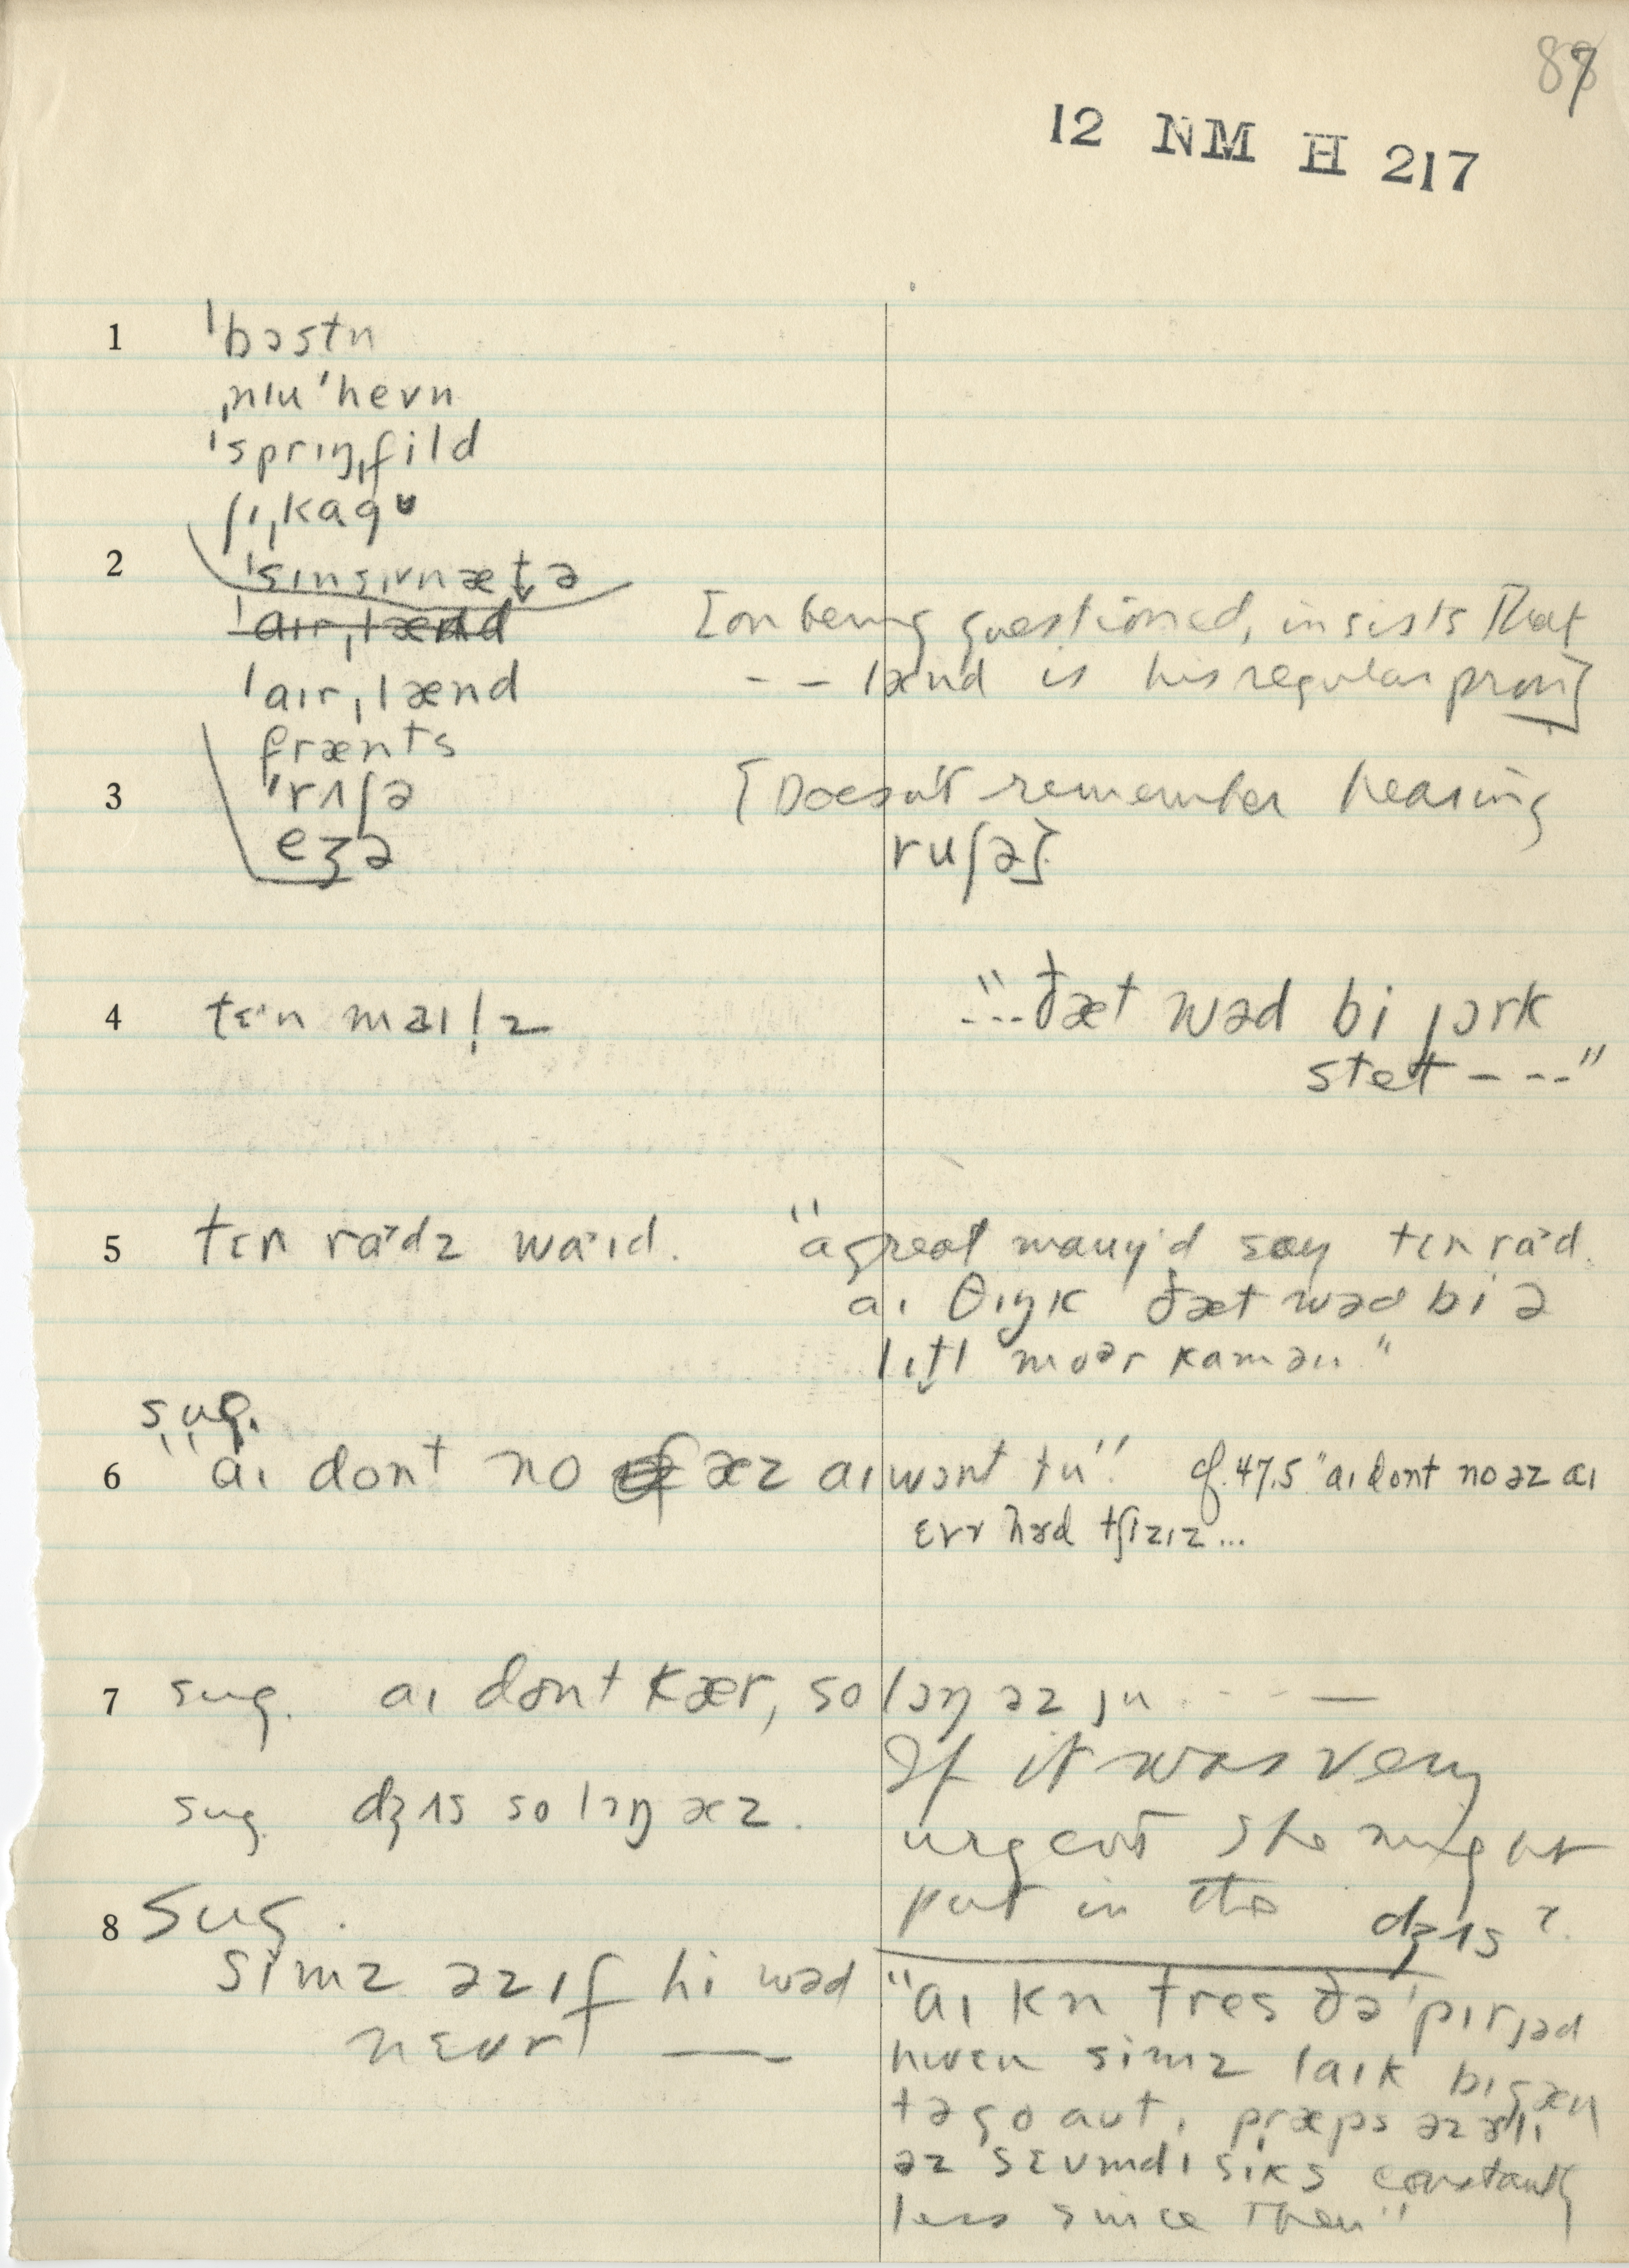 87
12 NM H 217
1 ˈbɔstn
ˌnɪuˈhevn
ˈsprɪŋˌfild
ʃɪˌkagʊ
2 ˈsɪnsɪvnætə
ˈaɪrˌlænd
[on being questioned, insists that
ˈaɪrˌlænd
-- lænd is his regular pron]
frænts
3 ˈrʌʃə
[Doesn't remember hearing
eʒə
ruʃə]
4 tɛ·n maɪl̩z
"---ðæt wəd bi jɔrk
stet ----"
5 tɛn ra·dz wa·ɪd.
"a great many'd say tɛn ra·d.
aɪ θɪŋk ðæt wəd bi ə
lɪt̬l moər kamən"
sug.
6 "aɪ dont no æz aɪ wɔnt tu"
cf. 47.5 "aɪ dont no əz aɪ
ɛvr hɚd tʃizɪz...
7 sug. aɪ dont kær, so lɔŋ əz ju ---- —
sug. dʒʌs so lɔŋ æz.
If it was very
urgent she might
put in the dʒʌs?
8 sug.
simz əz ɪf hi wəd
nɛvr —
"aɪ kn tres ðə ˈpɪrɪəd
hwɛn simz laɪk bɪgæn
tə go aut, præps əz ɚlɪ
əz sɛvmdɪ sɪks constantly
less since then"